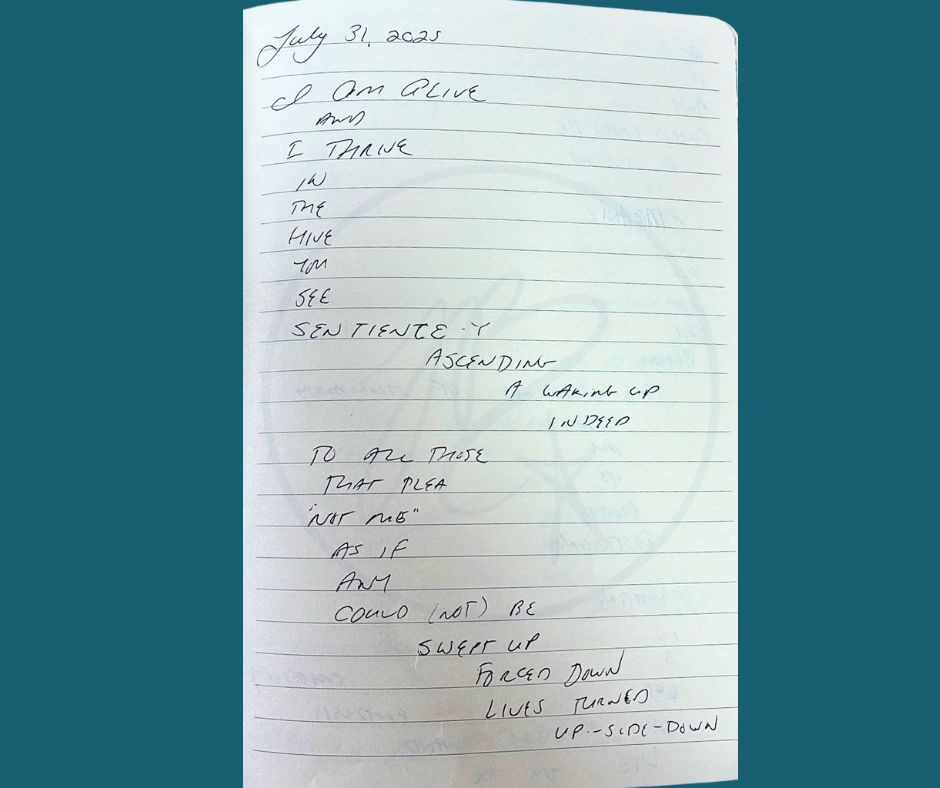 July 31, 2025
I Am ALIVE
AND
I THRIVE
IN
THE
HIVE
YOU
SEE
SENTIENTE-Y
ASCENDING
A WAKING UP
INDEED
TO ALL THOSE
THAT PLEA
"NOT ME"
AS IF
ANY
COULD (NOT) BE
SWEPT UP
FORCED DOWN
LIVES TURNED
UP-SIDE-DOWN